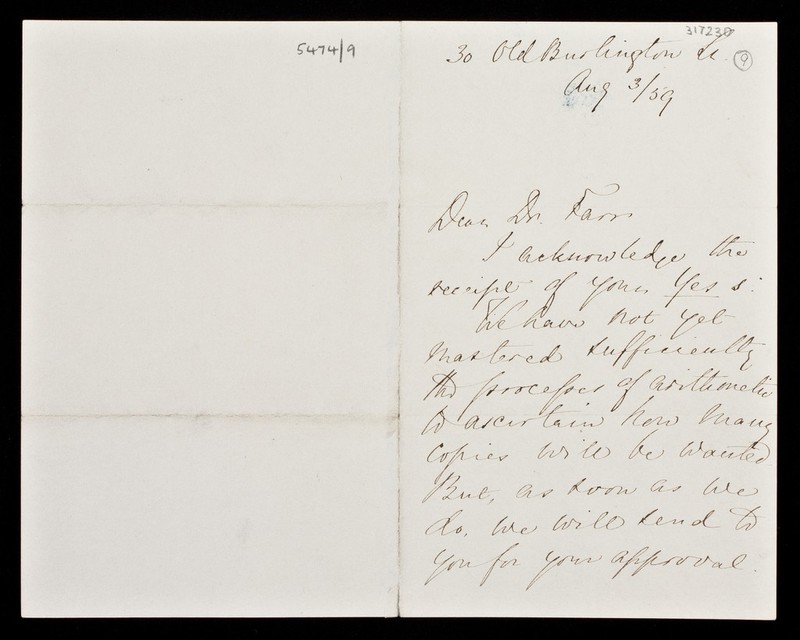 5474/9
317230
9
30 Old Burlington St.
Aug 3/59
Dear Dr. Farr
I acknowledge the
receipt of your
We have not yet
mastered sufficiently
the processes of arithmetic
to ascertain how many
copies will be wanted
But, as soon as we
do, we will send to
you for your approval.